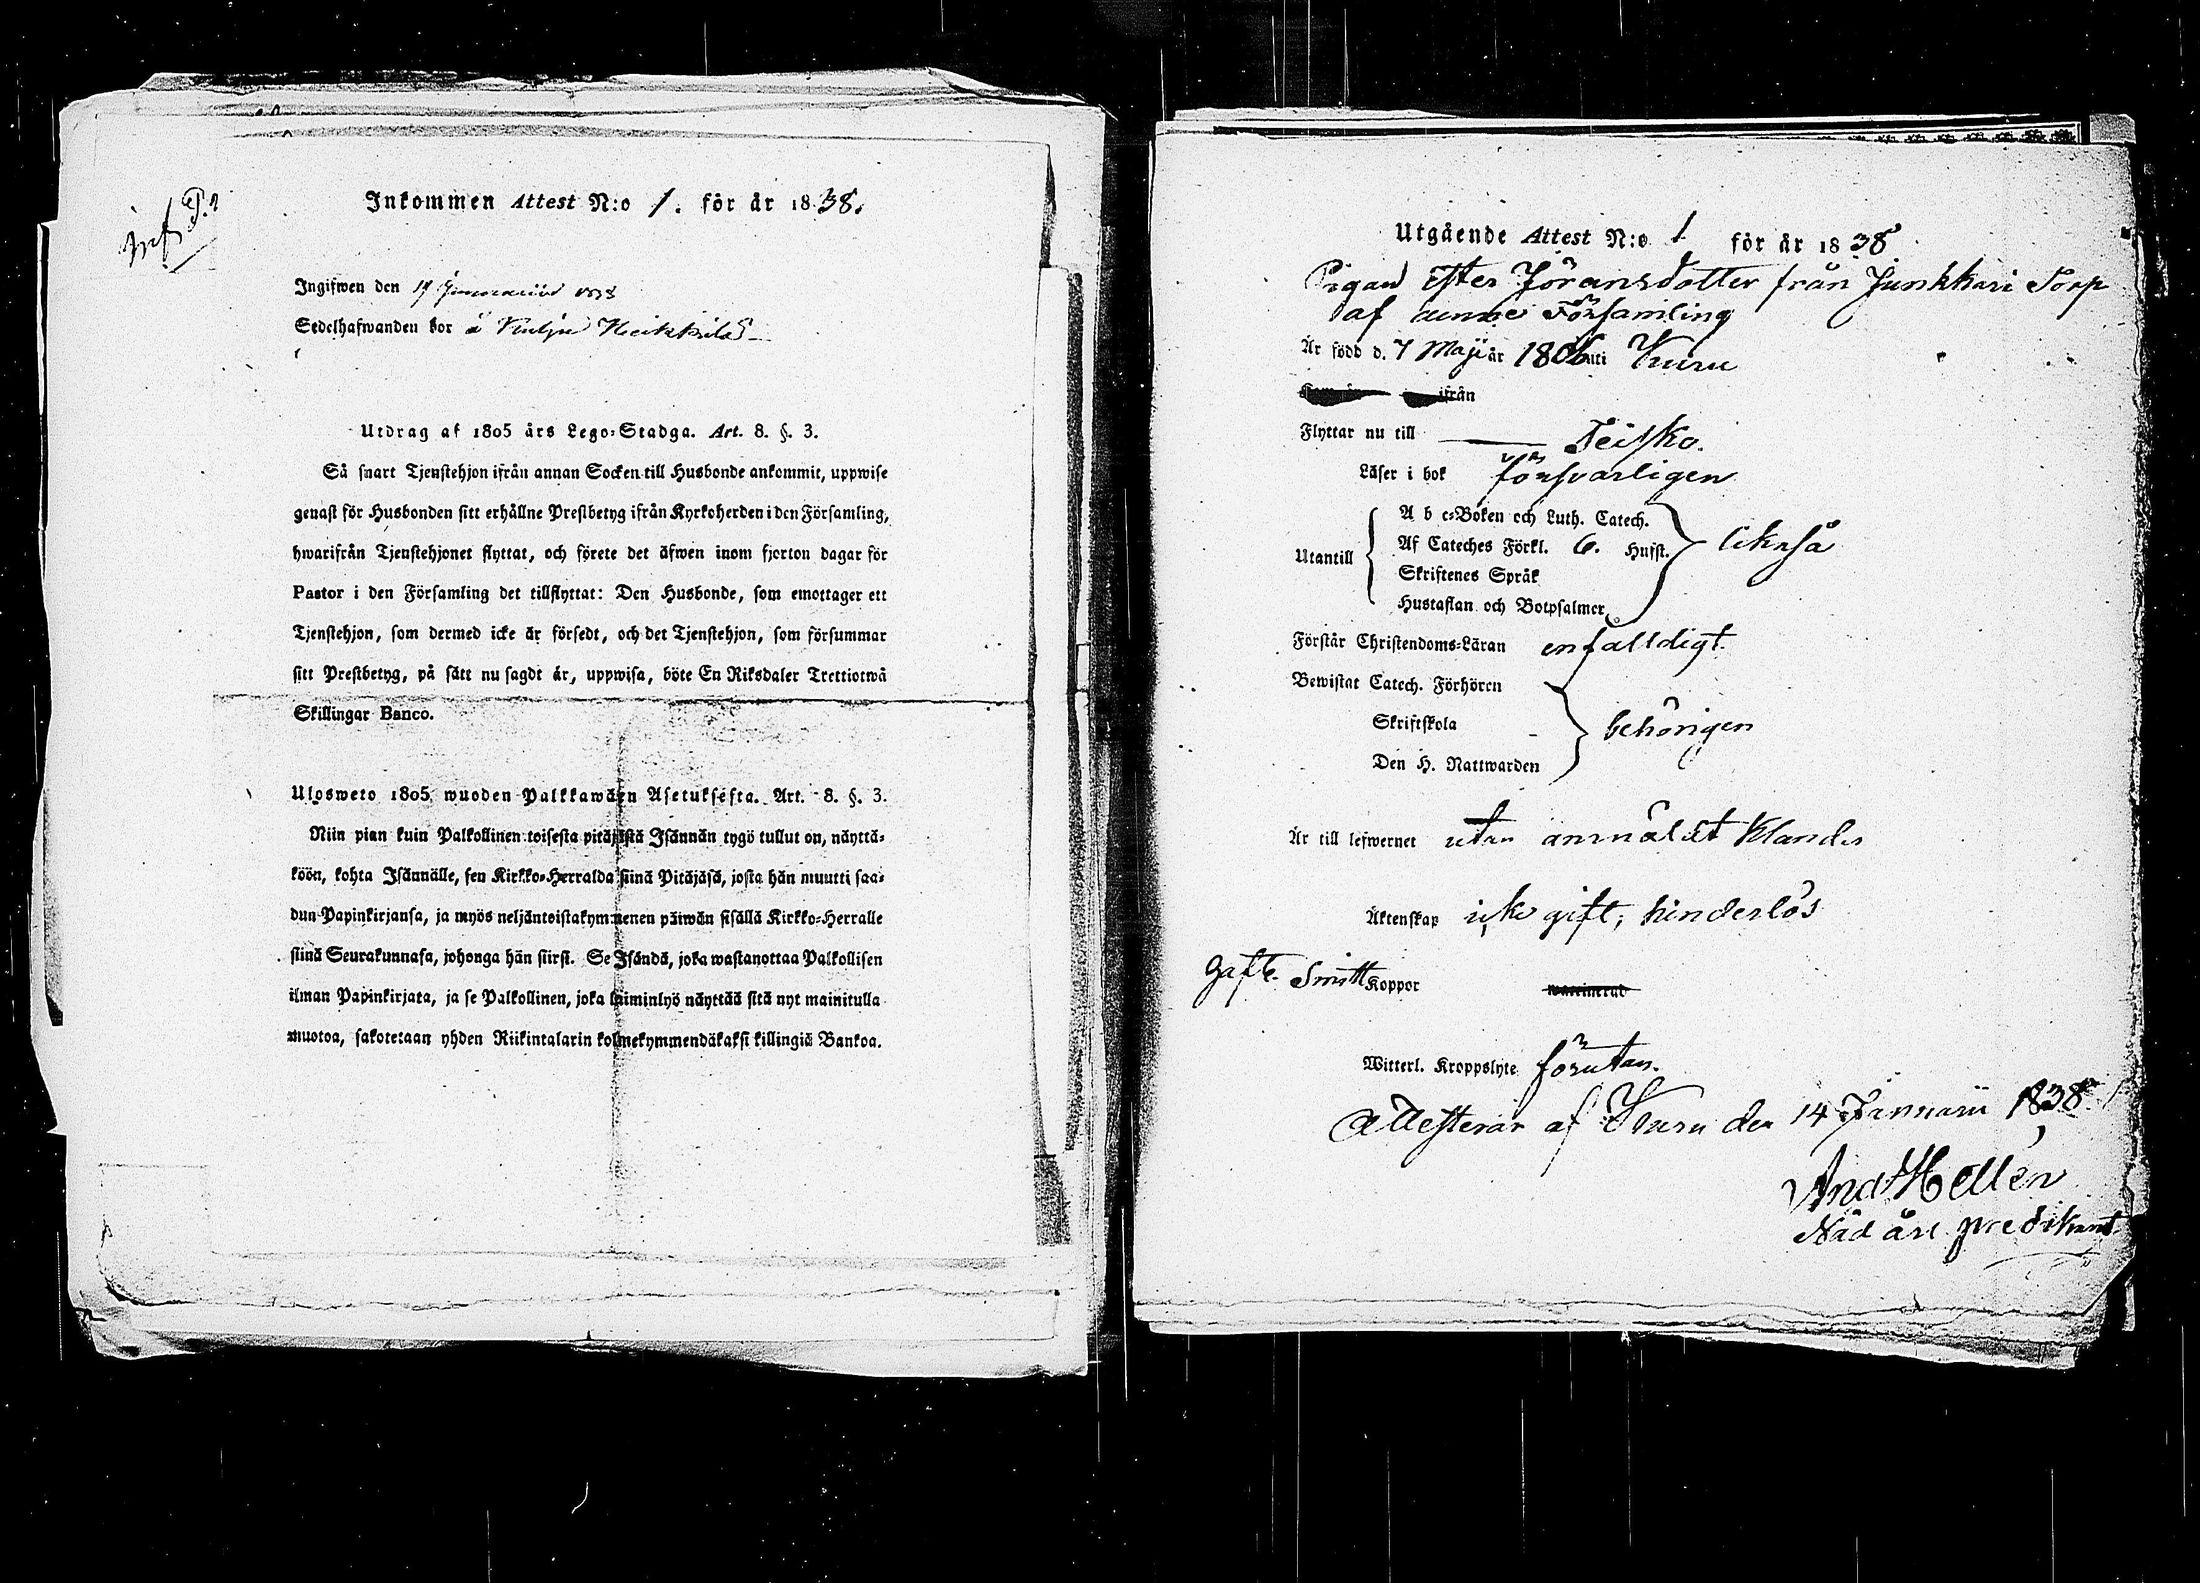 Inkommen Attest N:o 1. för år 1838.
Ingifwen den 19 Januarii 1838
Sedelhafwanden bor å Heikkilä
Utdrag af 1805 års Lego-Stadga. Art. 8. §. 3.
Så snart Tjenstehjon ifrån annan Socken till Husbonde ankommit, uppwise
genast för Husbonden sitt erhållne Prestbetyg ifrån Kyrkoherden i den Församling,
hwarifrån Tjenstehjonet flyttat, och förete det äfwen inom fjorton dagar för
Pastor i den Församling det tillflyttat: Den Husbonde, som emottager ett
Tjenstehjon, som dermed icke är försedt, och det Tjenstehjon, som försummar
sitt Prestbetyg, på sätt nu sagdt är, uppwisa, böte En Riksdaler Trettiotwå
Skillingar Banco.
Ulosweto 1805 wuoden Palkkawäen Asetuksesta. Art. 8. §. 3.
Niin pian kuin Palkollinen toisesta pitäjästä Isännän tygö tullut on, näyttä-
köön, kohta Isännälle, sen Kirkko-Herralda siinä Pitäjäsä, josta hän muutti saa-
dun Papinkirjansa, ja myös neljäntoistakymmenen päiwän sisällä Kirkko-Herralle
siinä Seurakunnasa, johonga hän siirsi. Se Isändä, joka wastanottaa Palkollisen
ilman Papinkirjata, ja se Palkollinen, joka laiminlyö näyttää sitä nyt mainitulla
muotoa, sakotetaan yhden Riikintalarin kolmekymmendäkaksi killingiä Bankoa.
Utgående Attest N:o 1 för år 1838
Pigan Ester Jöransdotter från Junkkari Torp
af denne Församling
Är född d. 7 Maji år 1806 uti Kuru
ifrån
Flyttar nu till Teisko.
Läser i bok försvarligen
A b c-Boken och Luth. Catech.
Af Cateches Förkl. 6. Hufst.
Utantill likaså
Skriftenes Språk
Hustaflan och Botpsalmer
Förstår Christendoms-Läran enfalldigt.
Bewistat Catech. Förhören
Skriftskola behörigen
Den H. Nattwarden
Är till lefwernet utan anmäldt klander
Äktenskap icke gift, hinderlös
haft. Smitt Koppor
Witterl. Kroppslyte förutan.
Attesterar af Kuru den 14 Januarii 1838
And Hellén
Nåd års predikant